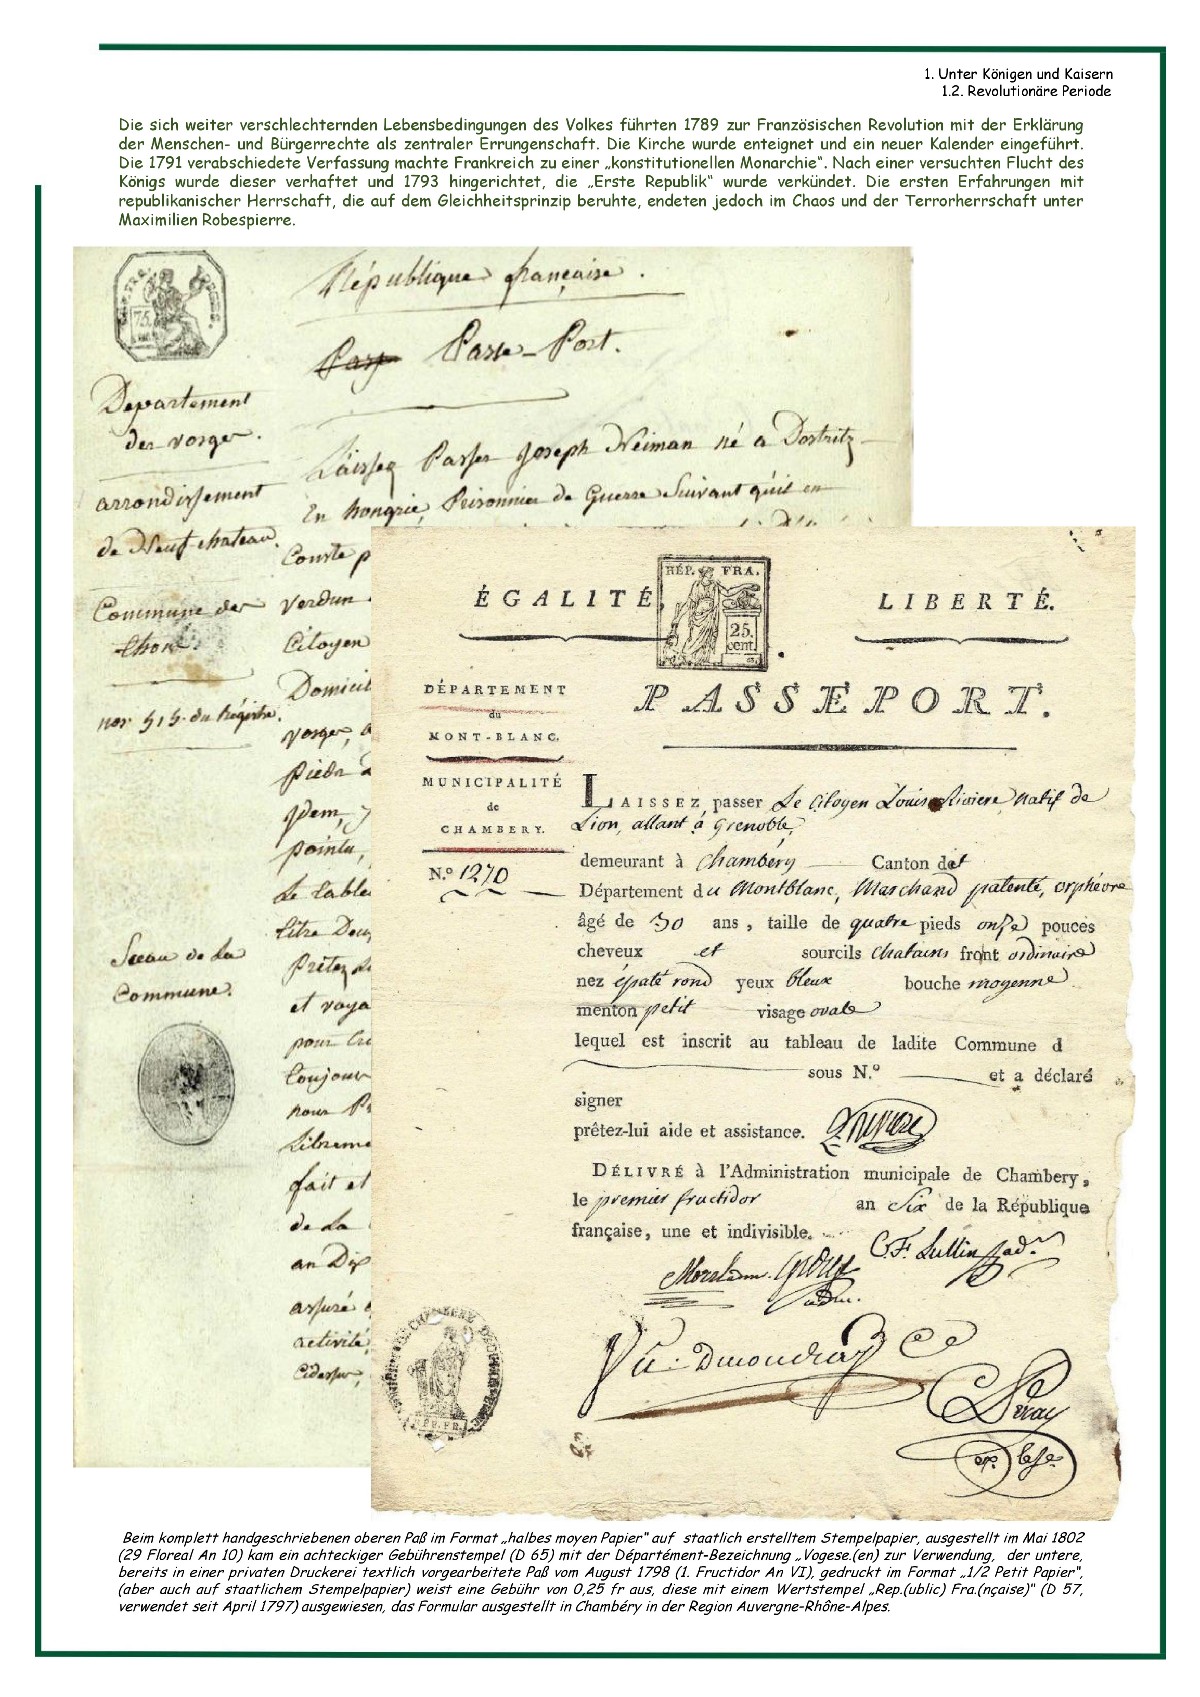 1. Unter Königen und Kaisern
1.2. Revolutionäre Periode
Die sich weiter verschlechternden Lebensbedingungen des Volkes führten 1789 zur Französischen Revolution mit der Erklärung
der Menschen- und Bürgerrechte als zentraler Errungenschaft. Die Kirche wurde enteignet und ein neuer Kalender eingeführt.
Die 1791 verabschiedete Verfassung machte Frankreich zu einer „konstitutionellen Monarchie“. Nach einer versuchten Flucht des
Königs wurde dieser verhaftet und 1793 hingerichtet, die „Erste Republik“ wurde verkündet. Die ersten Erfahrungen mit
republikanischer Herrschaft, die auf dem Gleichheitsprinzip beruhte, endeten jedoch im Chaos und der Terrorherrschaft unter
Maximilien Robespierre.
75
République française.
Passe-Port.
Departement
des vosges.
arrondissement
de Neuf-chateau.
Commune de
nos 515 du Régistre.
Sceau de la
Commune.
Laissez Passer Joseph Neiman né a Dostritz
En hongrie, Prisonnier de Guerre Suivant qu'il en
Conste p
verdun
Citoyen
Domicil
vosges, a
pieds
Idem, y
pointu,
Le table
titre Deu
Prêtez L
et voya
pour
toujours
nous P
Libreme
fait et
de La
an Dix
assuré
activité,
cidessus,
ÉGALITÉ
RÉP. FRA.
25
cent.
LIBERTÉ.
DÉPARTEMENT
du
MONT-BLANC.
MUNICIPALITÉ
de
CHAMBERY.
N.º 1270
PASSEPORT.
LAISSEZ passer Le Citoyen Louis Riviere, natif de
Lion, allant à Grenoble,
demeurant à Chambéry Canton det
Département du Montblanc, Marchand patenté, orphévre
âgé de 30 ans, taille de quatre pieds onze pouces
cheveux et sourcils chatains front ordinaire
nez épaté rond yeux bleux bouche moyenne
menton petit visage ovale
lequel est inscrit au tableau de ladite Commune d
sous N.º et a déclaré
signer
prêtez-lui aide et assistance.
DÉLIVRÉ à l'Administration municipale de Chambery,
le premier fructidor an Six de la République
française, une et indivisible.
C. F. Lullin adr
RÉP. FR.
Beim komplett handgeschriebenen oberen Paß im Format „halbes moyen Papier“ auf staatlich erstelltem Stempelpapier, ausgestellt im Mai 1802
(29 Floreal An 10) kam ein achteckiger Gebührenstempel (D 65) mit der Départément-Bezeichnung „Vogese.(en) zur Verwendung, der untere,
bereits in einer privaten Druckerei textlich vorgearbeitete Paß vom August 1798 (1. Fructidor An VI), gedruckt im Format „1/2 Petit Papier“,
(aber auch auf staatlichem Stempelpapier) weist eine Gebühr von 0,25 fr aus, diese mit einem Wertstempel „Rep.(ublic) Fra.(nçaise)“ (D 57,
verwendet seit April 1797) ausgewiesen, das Formular ausgestellt in Chambéry in der Region Auvergne-Rhône-Alpes.